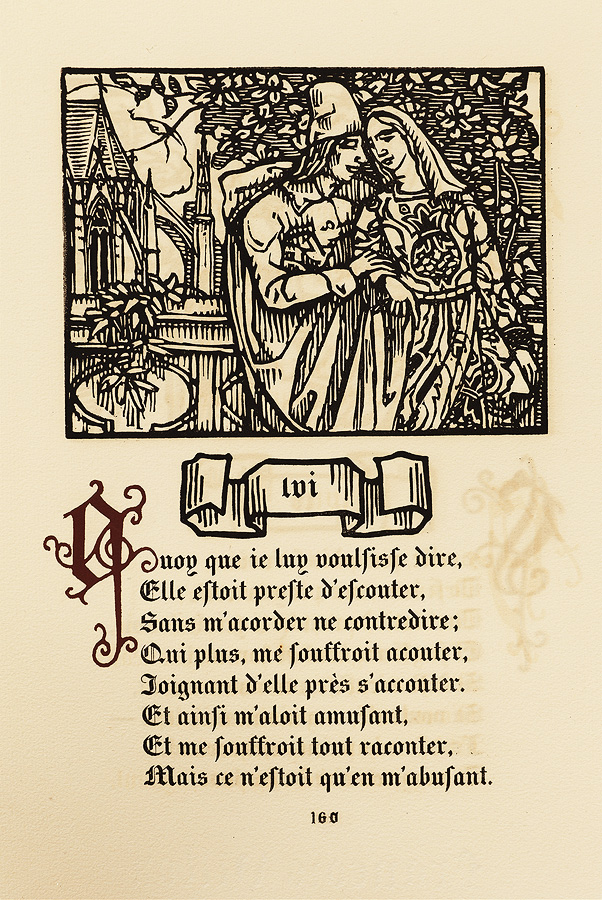 lvi
Quoy que ie luy voulſiſſe dire,
Elle eſtoit preſte d'eſcouter,
Sans m'acorder ne contredire;
Qui plus, me ſouffroit acouter,
Joignant d'elle près s'accouter.
Et ainſi m'aloit amuſant,
Et me ſouffroit tout raconter,
Mais ce n'eſtoit qu'en m'abuſant.
160